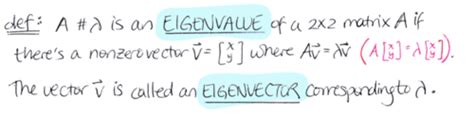 def: A # λ is an EIGENVALUE of a 2x2 matrix A if
there's a nonzero vector v⃗ = [x y] where Av⃗ = λv⃗ (A[x y] = λ[x y])
The vector v⃗ is called an EIGENVECTOR corresponding to λ.